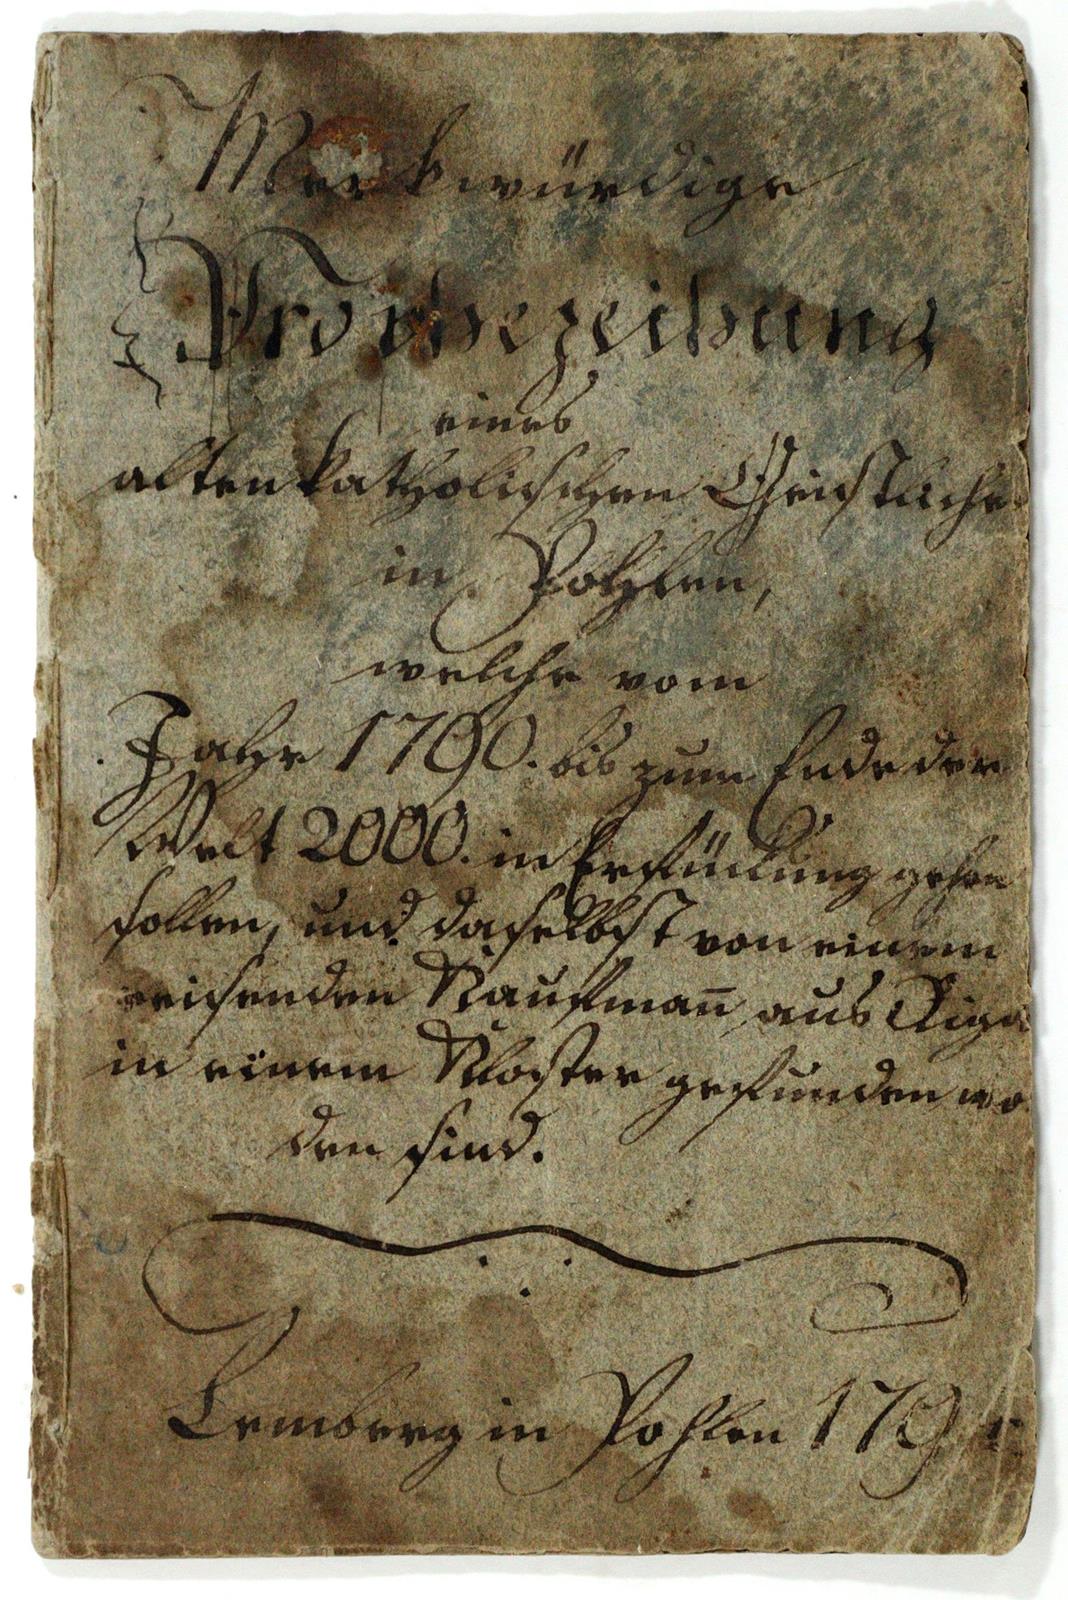 Merkwürdige
Prophezeihung
eines
alten katholischen Geistliche
in Pohlen,
welche vom
Jahr 1790. bis zum Ende der
Welt 2000. in Erfüllung gehen
sollen, und daselbst von einem
reisenden Kaufmañ aus Riga
in einem Kloster gefunden wor
den sind.
Lemberg in Pohlen 179